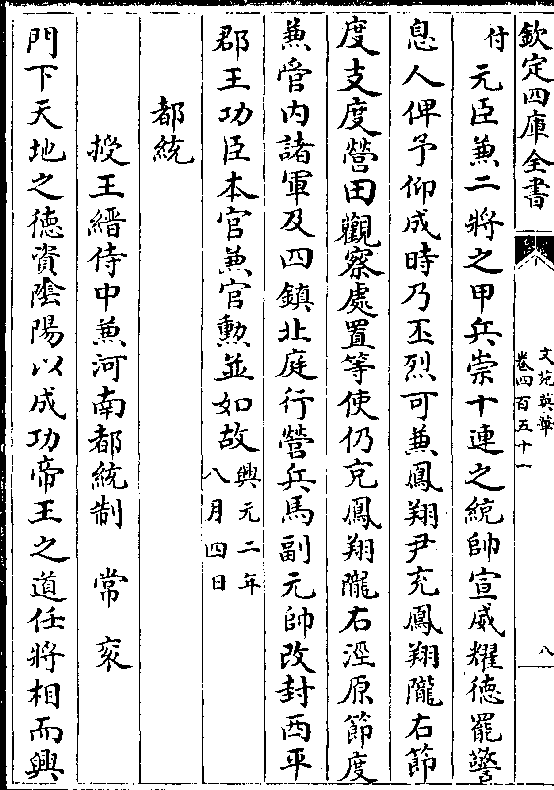 欽定四庫全書
文苑英華
卷四百五十一
八
付元臣兼二將之甲兵崇十連之統帥宣威耀德罷警
息人俾予仰成時乃丕烈可兼鳳翔尹充鳳翔隴右節
度支度營田觀察處置等使仍充鳳翔隴右涇原節度
兼管内諸軍及四鎮北庭行營兵馬副元帥改封西平
郡王功臣本官兼官勲並如故興元二年八月四日
都統
授王縉侍中兼河南都統制 常衮
門下天地之德資陰陽以成功帝王之道任將相而興